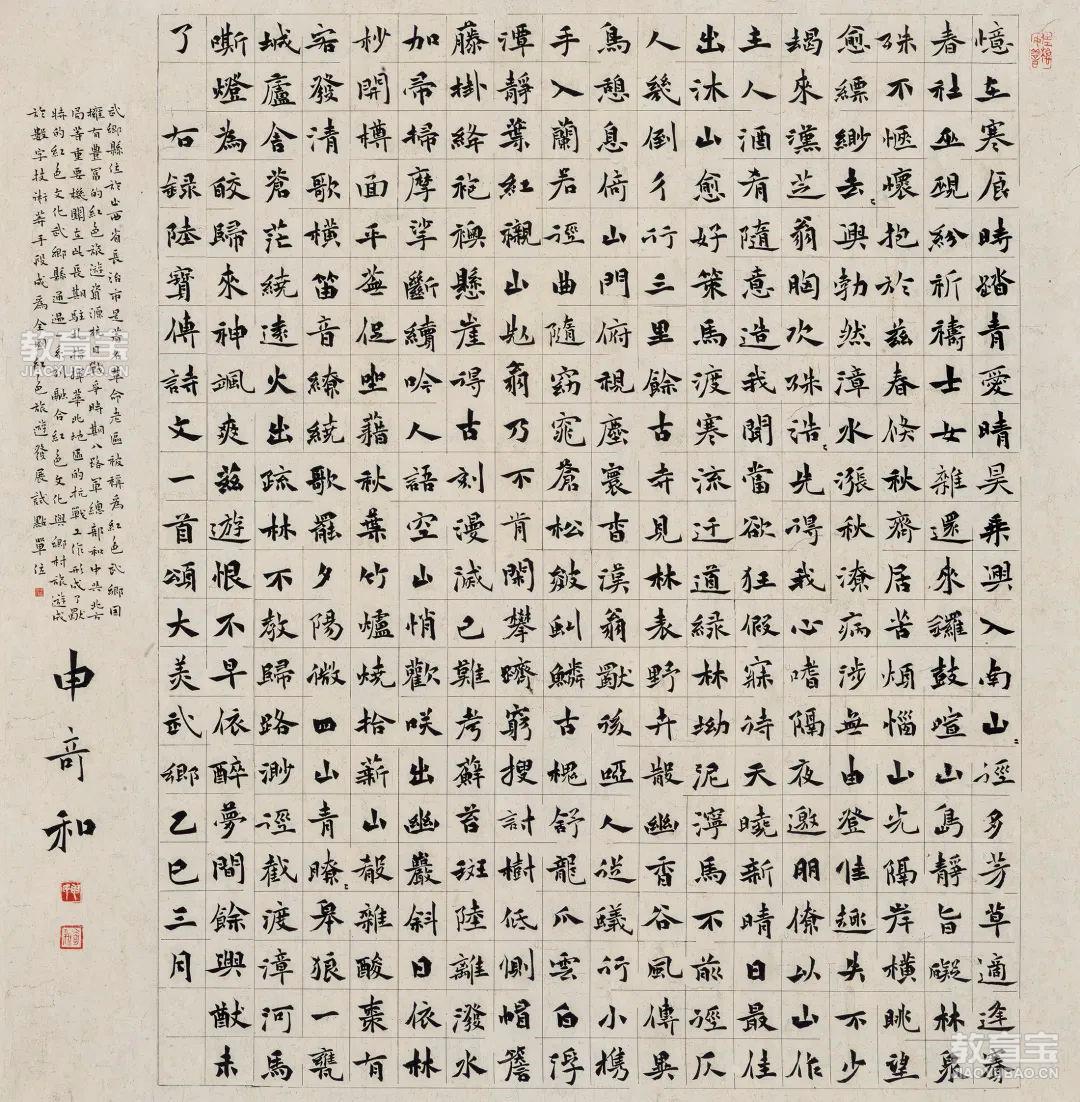 憶在寒辰時踏青愛晴昊乘興入南山〻徑多芳草適逢賽
春社巫覡紛祈禱士女雜還來鑼鼓喧山鳥靜旨礙林泉
殊不愜懷抱於茲春候秋齊居苦煩惱山光隔岸橫眺望
愈縹緲去〻興勃然漳水漲秋潦病涉無由登佳趣失不少
朅來漢芝翁胸次殊浩〻先得我心嗜隔夜邀朋僚以山作
主人酒肴隨意造我聞當欲狂假寐待天曉新晴日最佳
出沐山愈好策馬渡寒流迂道綠林坳泥濘馬不前徑仄
人幾倒行行三里餘古寺見林表野卉散幽香谷風傳異
鳥憩息倚山門俯視塵寰杳漢翁獸孩啞人從蟻行小攜
手入蘭若徑曲隨窈窕蒼松皴虯鱗古槐舒龍爪雲白浮
潭靜葉紅襯山尟翁乃不肯閑攀躋窮搜討樹低惻帽簷
藤掛絳袍襖懸崖得古刻漫滅已難考蘚苔斑陸離潑水
加帚掃摩挲斷續吟人語空山悄歡咲出幽巖斜日依林
杪開樽面平促坐藉秋葉竹爐燒拾薪山殽雜酸棗有
宕發清歌橫笛音繚繞歌罷夕陽微四山青瞭〻舉狼一甕
城廬舍蒼茫繞遠火出疏林不教歸路渺徑截渡漳河馬
嘶燈為皎歸來神颯爽茲遊恨不早依醉夢間餘興猷未
了右錄陸寶傅詩文一首頌大美武鄉乙巳三月
武鄉縣位於山西省長治市是著名革命老區被稱為紅色武鄉因
擁有豐富的紅色旅遊資源抗日戰爭時期八路軍總部和中共北方
局等重要機關在此長期駐扎指揮華北地區的抗戰工作形成了獨
特的紅色文化武鄉縣通過一系列融合紅色文化與鄉村旅遊成
於數字技術等手段成為全國紅色旅遊發展試點單位
申奇和
教育宝
JIAOYUBAO.CN
教育宝
JIAOYUBAO.CN